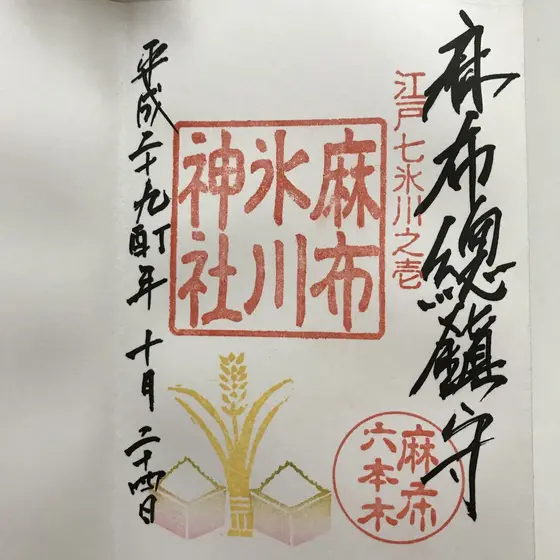 麻布總鎮守
江戸七氷川之壱
麻布
氷川
神社
麻布
六本木
平成二十九丁酉年十月二十四日